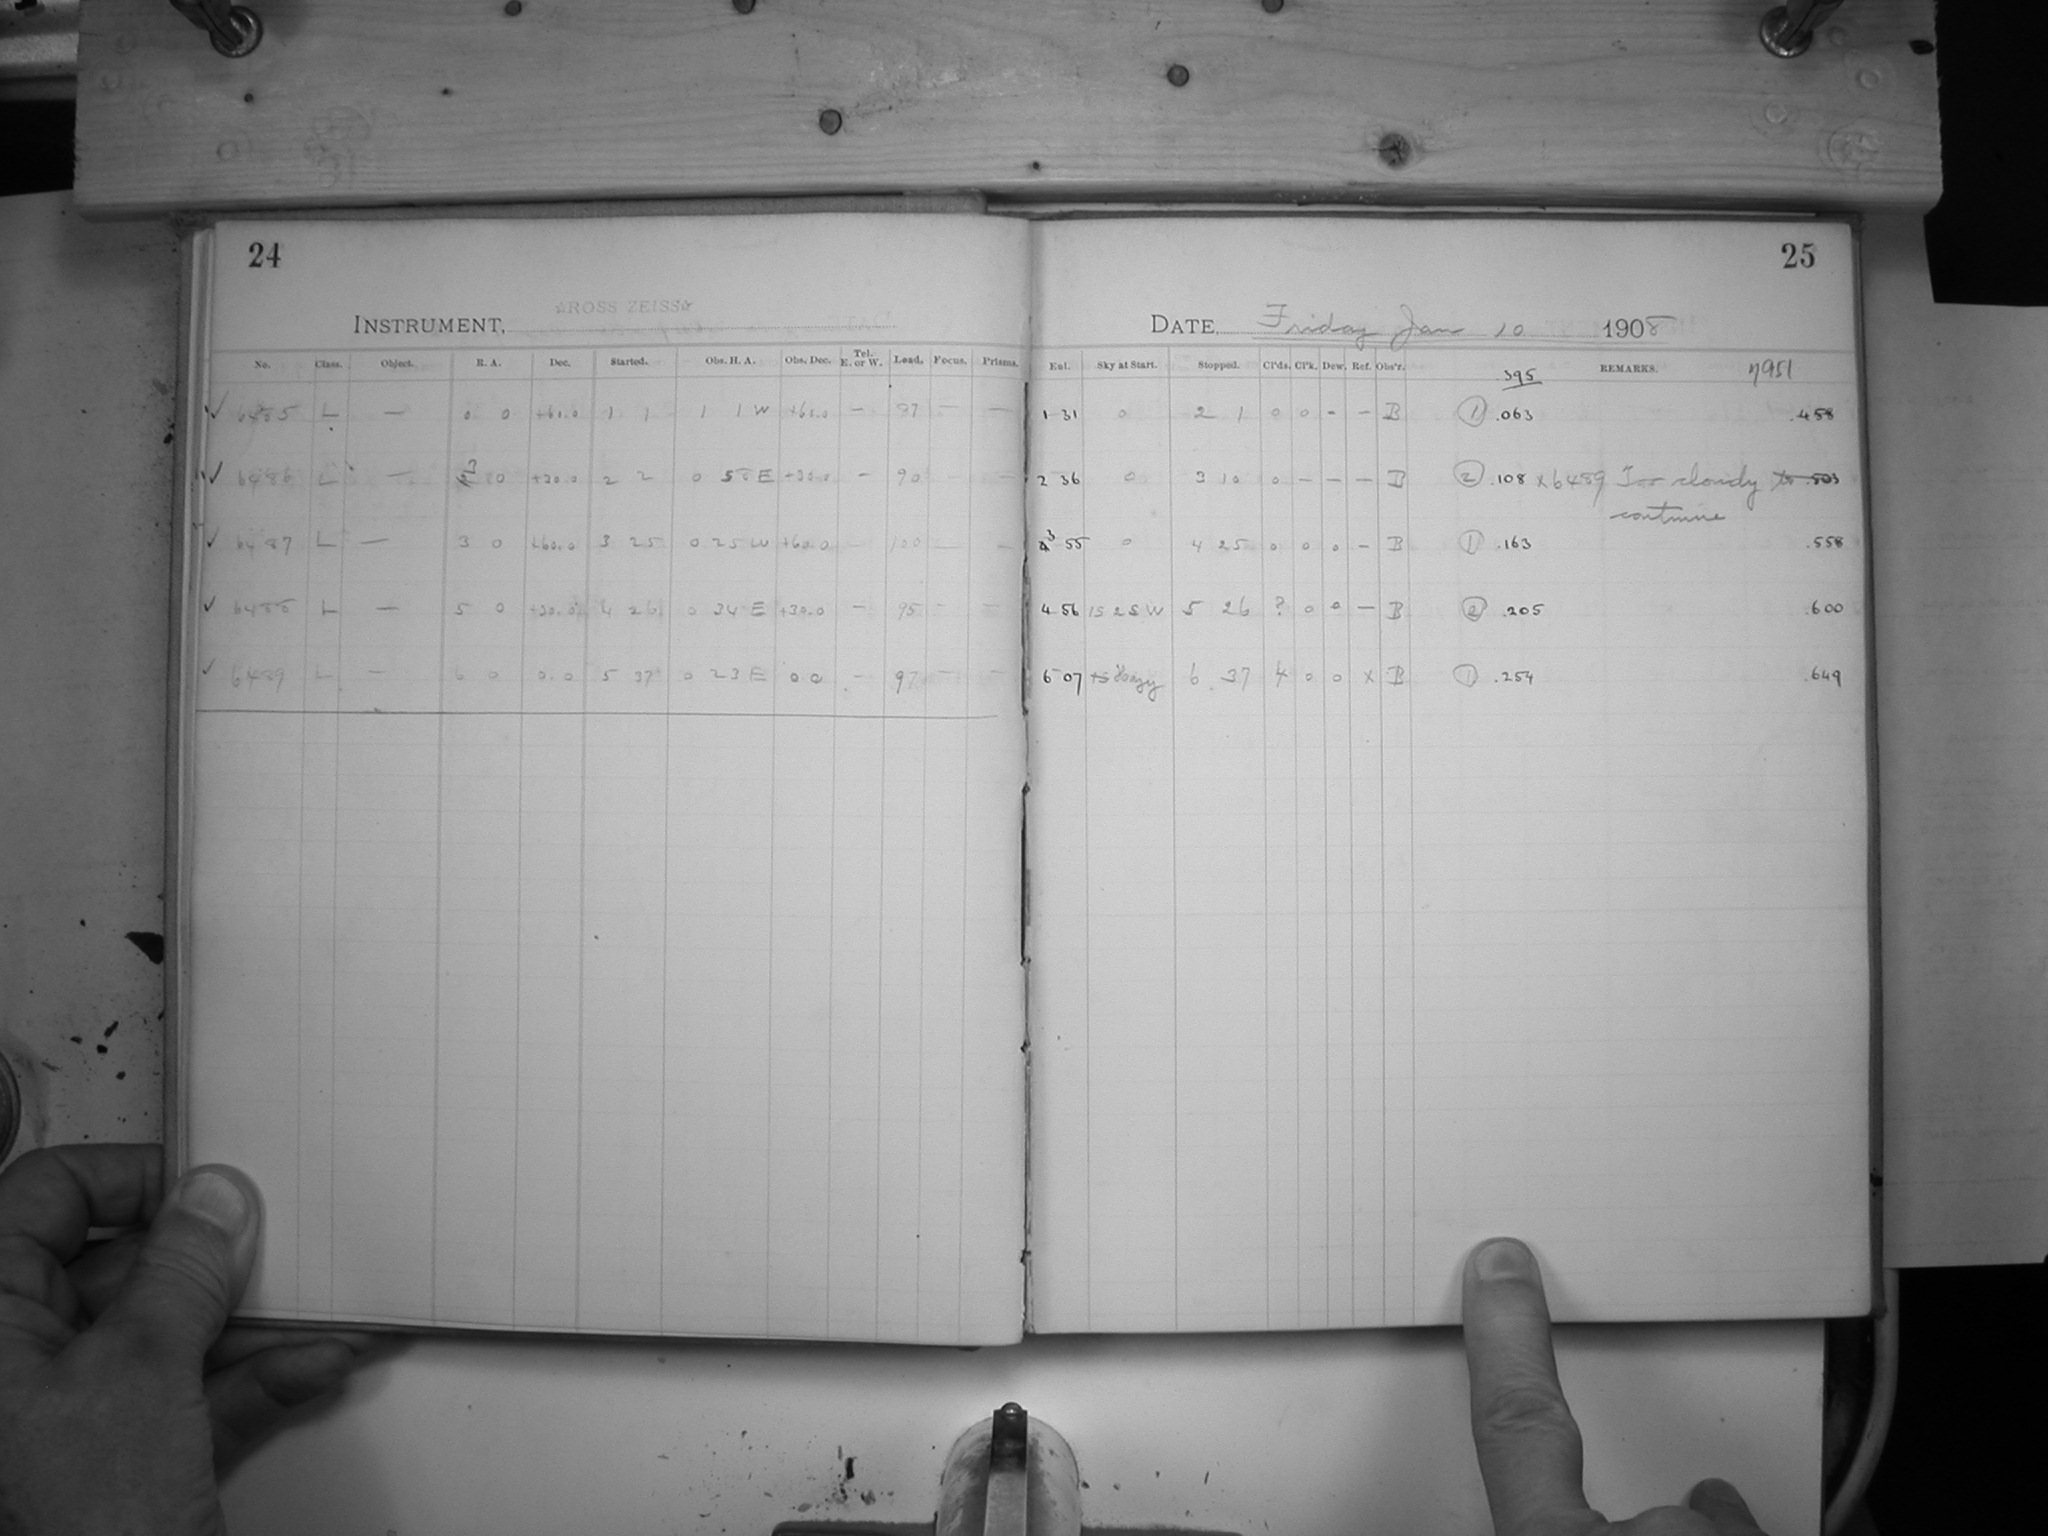 24
☆ROSS ZEISS☆
INSTRUMENT,
No. Class. Object. R. A. Dec. Started. Obs. H. A. Obs. Dec. Tel. E. or W. Load. Focus. Prisms.
✓ 6485 L — 0 0 +60.0 1 1 1 1 W +60.0 — 87 — —
✓ 6486 L — 3 0 +30.0 2 2 0 58 E +30.0 — 90 — —
✓ 6487 L — 3 0 +60.0 3 25 0 25 W +60.0 — 100 — —
✓ 6488 L — 5 0 +30.0 4 26 0 34 E +30.0 — 95 — —
✓ 6489 L — 6 0 0.0 5 37 0 23 E 0 0 — 97 — —
25
DATE, Friday Jan 10 1908
Ent. Sky at Start. Stopped. Cl'ds. Cl'k. Dew. Ref. Obs'r. 395 REMARKS. 7951
1 31 0 2 1 0 0 - - B ① .063 .458
2 36 0 3 10 0 - - - B ② .108 x 6489 Too cloudy to .503
continue
3 55 0 4 25 0 0 0 - B ① .163 .558
4 56 IS 2 S W 5 26 ? 0 0 — B ② .205 .600
6 07 Hazy 6 37 4 0 0 x B ① .254 .649